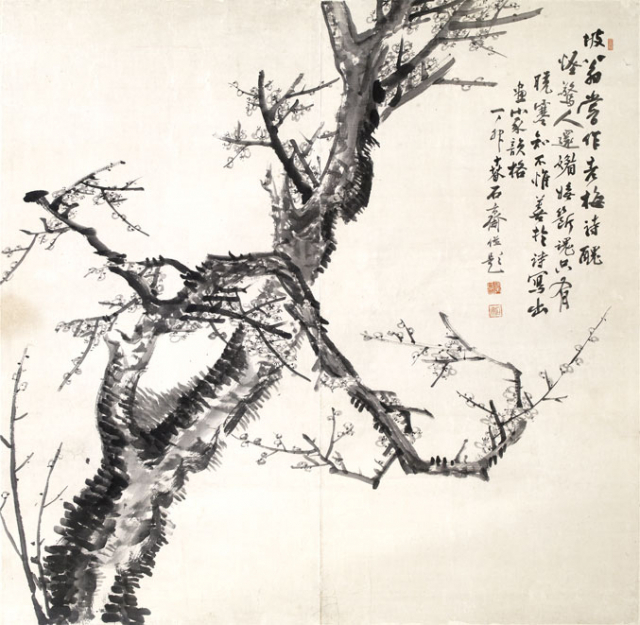 坡翁嘗作老梅詩醜
怪驚人還媚嫵斷魂只有
曉寒知不惟善於詩寫出
家韻格
丁卯春石齋題